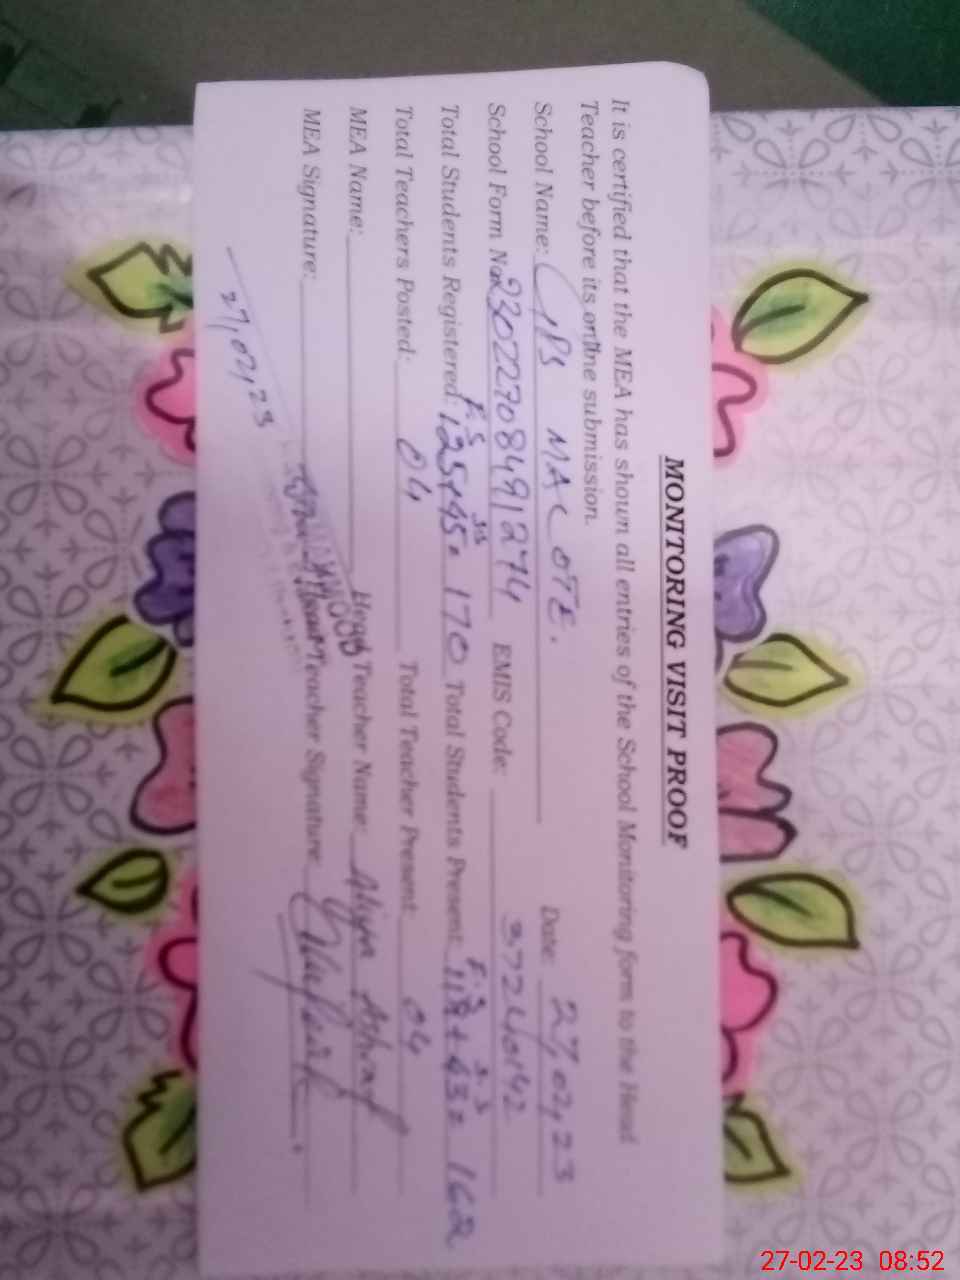 MONITORING VISIT PROOF
It is certified that the MEA has shown all entries of the School Monitoring form to the Head
Teacher before its online submission.
School Name: GPS MAC OTE. Date: 27,02,23
School Form No: 23022708491274 EMIS Code: 37240142
Total Students Registered: F.S 125+45= 170 Total Students Present: F.S 119+43= 162
Total Teachers Posted: 04 Total Teacher Present: 04
MEA Name: Head Teacher Name: Aliya Ashraf
MEA Signature: Head Teacher Signature
27,02,23
27-02-23 08:52